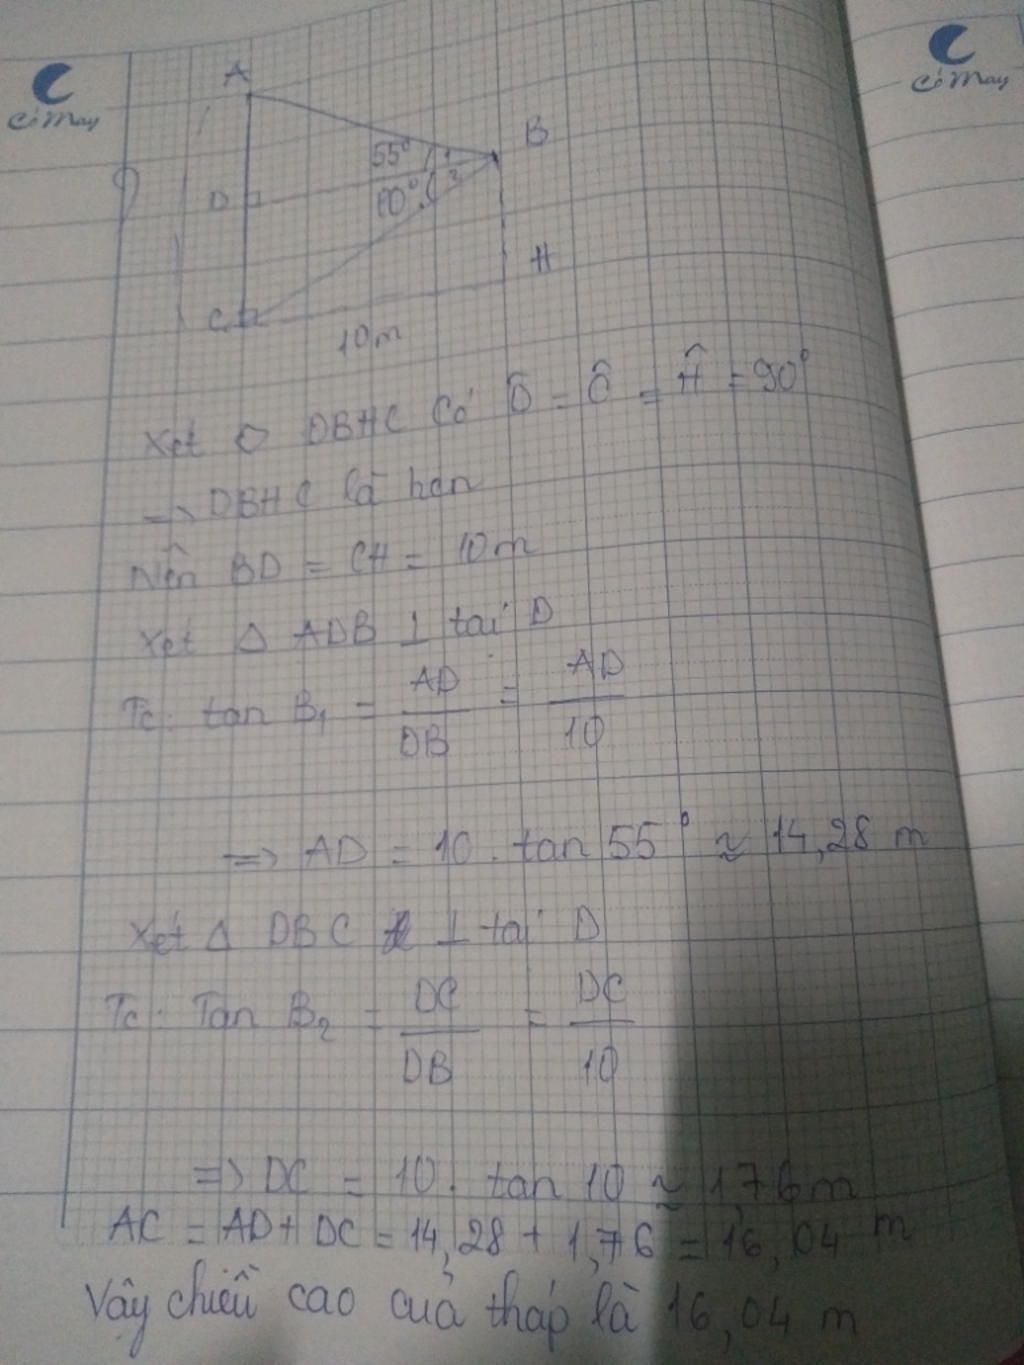 Cỏ May
Cỏ May
A
B
55°
1
D
10°
2
H
C
10m
Xét DBHC Có D̂ = Ĉ = Ĥ = 90°
=> DBHC là hcn
Nên BD = CH = 10m
Xét Δ ADB ⊥ tại D
Tc: tan B₁ = AD/DB = AD/10
=> AD = 10 . tan 55° ≈ 14,28 m
Xét Δ DBC ⊥ tại D
Tc: Tan B₂ = DC/DB = DC/10
=> DC = 10. tan 10 ≈ 1,76m
AC = AD + DC = 14,28 + 1,76 = 16,04 m
Vậy chiều cao của tháp là 16,04 m